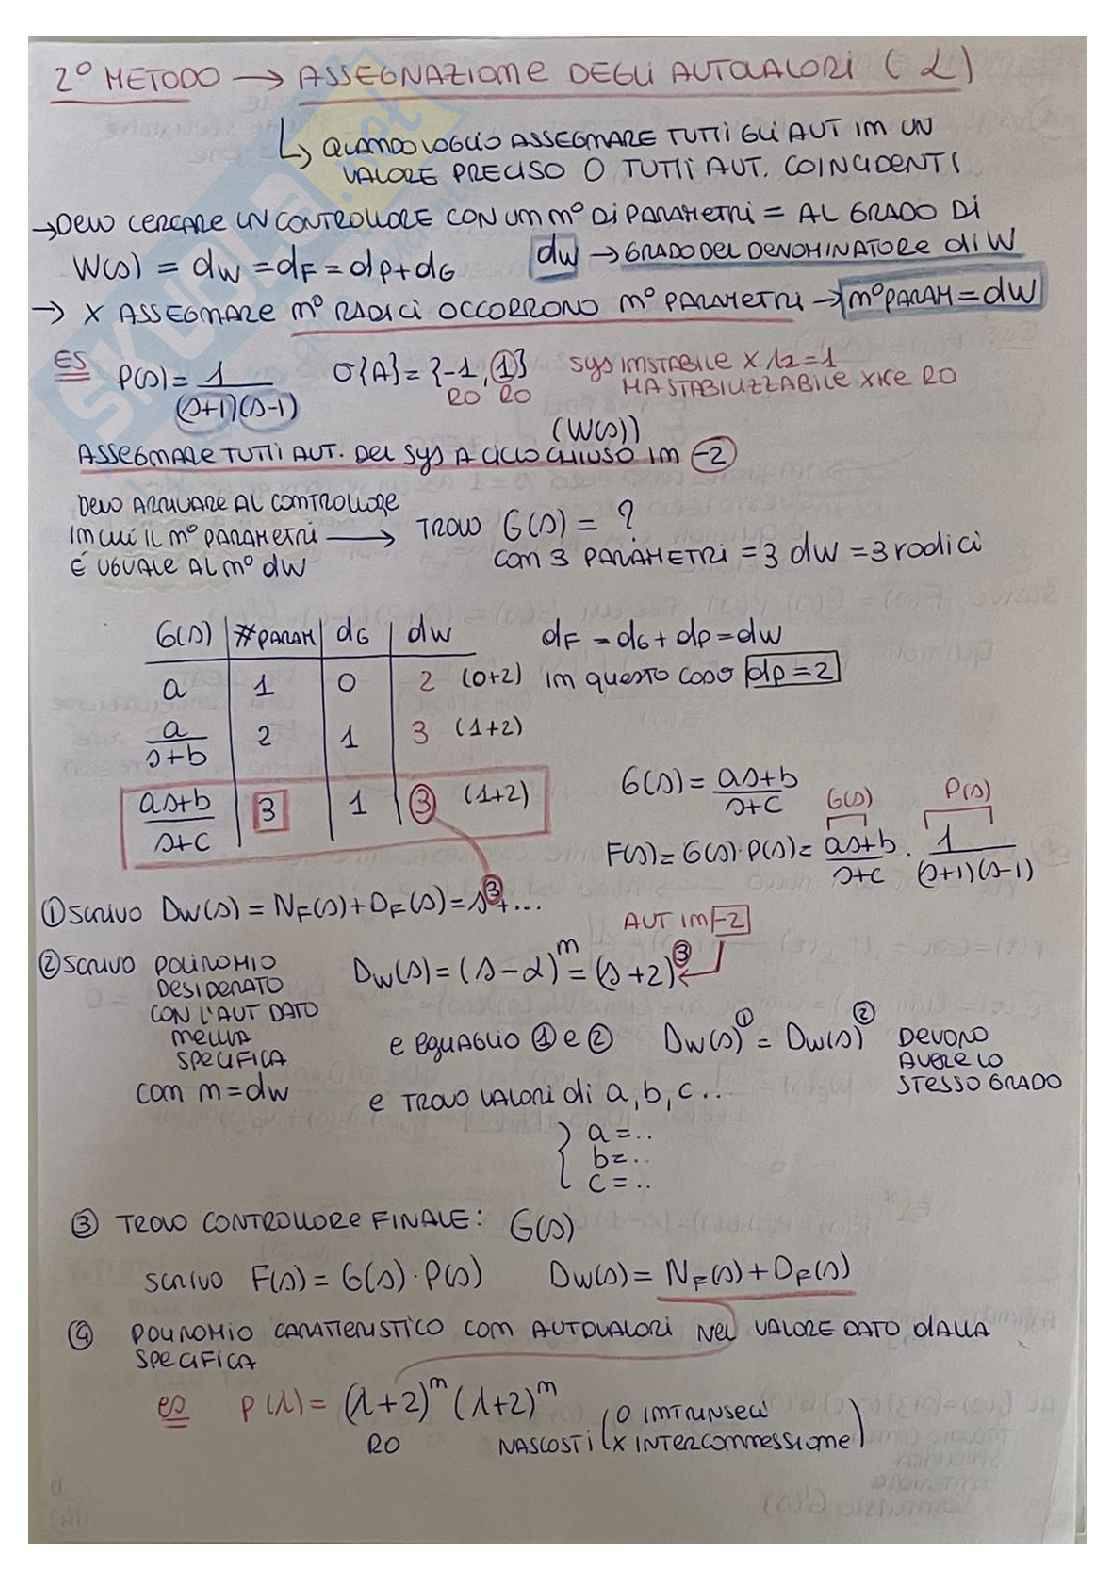 2° METODO → ASSEGNAZIONE DEGLI AUTOVALORI (α)
↳ QUANDO VOGLIO ASSEGNARE TUTTI GLI AUT IN UN
VALORE PRECISO O TUTTI AUT. COINCIDENTI
→ DEVO CERCARE UN CONTROLLORE CON UN n° Di PARAMETRI = AL GRADO DI
W(s) = dw = dF = dp + dG dw → GRADO DEL DENOMINATORE di W
→ X ASSEGNARE n° RADICI OCCORRONO n° PARAMETRI → n° PARAM = dw
ES P(s) = 1/((s+1)(s-1)) σ{A} = {-1, 1} SYS INSTABILE X λ2 = 1
RO RO MA STABILIZZABILE XKE RO
(W(s))
ASSEGNARE TUTTI AUT. DEL SYS A CICLO CHIUSO IN -2
DEVO ARRIVARE AL CONTROLLORE
IN CUI IL n° PARAMETRI → TROVO G(s) = ?
É UGUALE AL n° dw CON 3 PARAMETRI = 3 dw = 3 radici
G(s) | #PARAM | dG | dw dF = dG + dp = dw
a | 1 | 0 | 2 (0+2) in questo caso dp = 2
a/(s+b) | 2 | 1 | 3 (1+2)
(as+b)/(s+c) | 3 | 1 | 3 (1+2) G(s) = (as+b)/(s+c)
G(s) P(s)
F(s) = G(s)·P(s) = (as+b)/(s+c) · 1/((s+1)(s-1))
① SCRIVO Dw(s) = NF(s) + DF(s) = s³+...
AUT IN -2
② SCRIVO POLINOMIO Dw(s) = (s-α)ⁿ = (s+2)³
DESIDERATO
CON L'AUT DATO
NELLA
SPECIFICA
con n = dw
e EGUAGLIO ① e ② Dw(s)① = Dw(s)② DEVONO
AVERE LO
STESSO GRADO
e TROVO VALORI di a, b, c...
{ a = ..
b = ..
c = ..
③ TROVO CONTROLLORE FINALE: G(s)
SCRIVO F(s) = G(s)·P(s) Dw(s) = NF(s) + DF(s)
④ POLINOMIO CARATTERISTICO CON AUTOVALORI NEL VALORE DATO dALLA
SPECIFICA
es P(λ) = (λ+2)ⁿ (λ+2)ⁿ
RO NASCOSTI (O INTRINSECI
X INTERCONNESSIONE)
SKUOLA.net